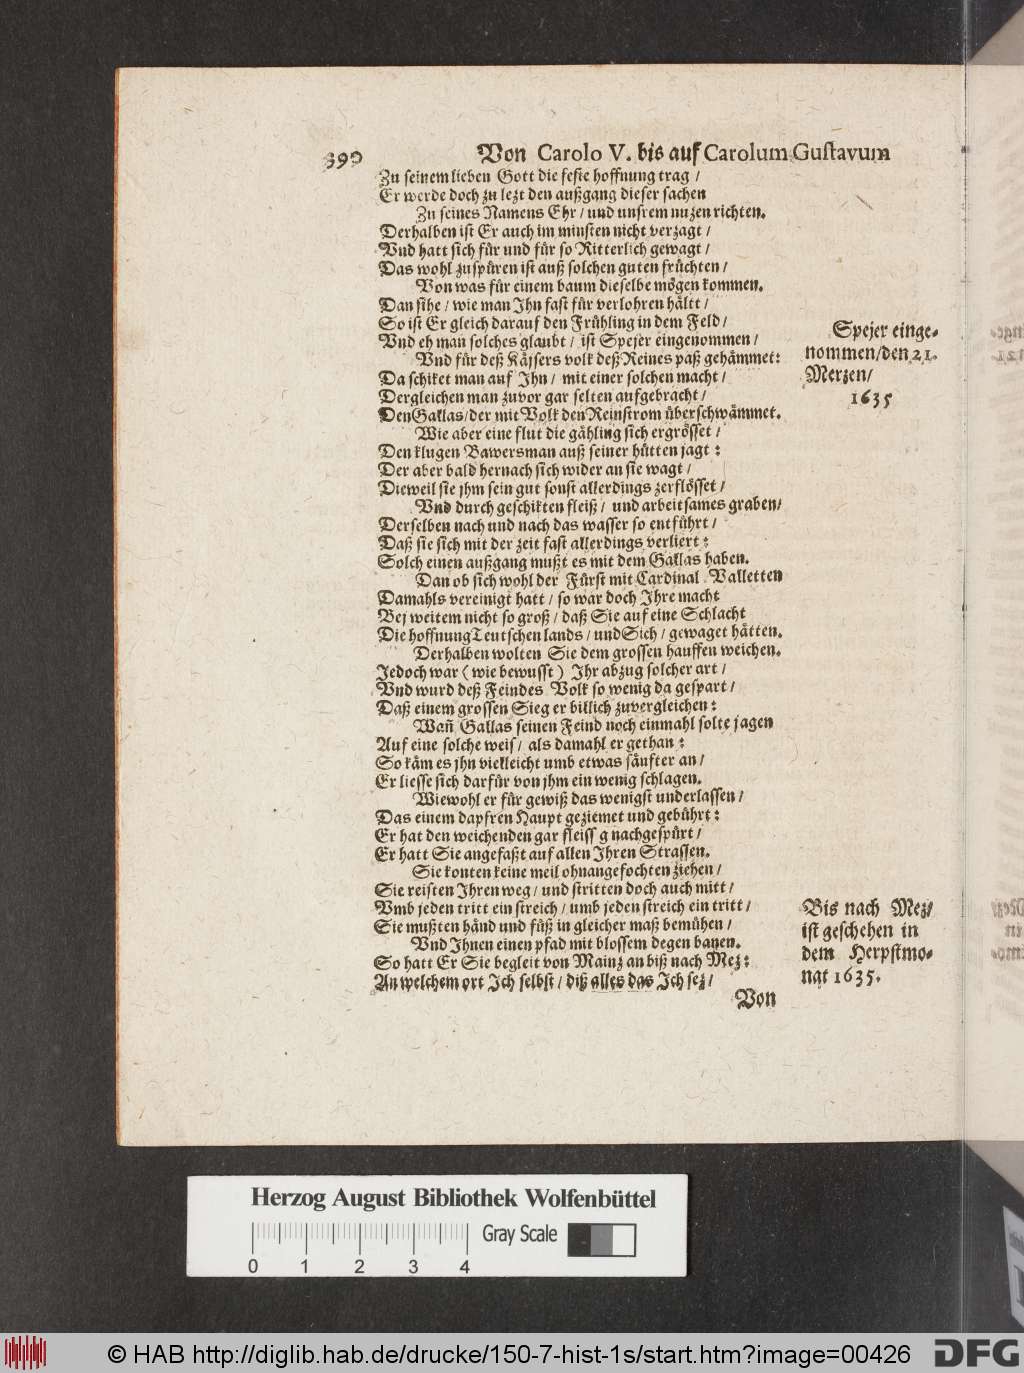 390
Von Carolo V. bis auf Carolum Gustavum
Zu seinem lieben Gott die feste hoffnung trag /
Er werde doch zu lezt den außgang dieser sachen
Zu seines Namens Ehr / und unsrem nuzen richten.
Derhalben ist Er auch im minsten nicht verzagt /
Vnd hatt sich für und für so Ritterlich gewagt /
Das wohl zuspüren ist auß solchen guten früchten /
Von was für einem baum dieselbe mögen kommen.
Dan sihe / wie man Ihn fast für verlohren hältt /
So ist Er gleich darauf den Frühling in dem Feld /
Vnd eh man solches glaubt / ist Spejer eingenommen /
Vnd für deß Käjsers volk deß Reines paß gehämmet:
Da schiket man auf Ihn / mit einer solchen macht /
Dergleichen man zuvor gar selten aufgebracht /
Den Gallas / der mit Volk den Reinstrom überschwämmet.
Wie aber eine flut die gähling sich ergrösset /
Den klugen Bawersman auß seiner hütten jagt :
Der aber bald hernach sich wider an sie wagt /
Dieweil sie jhm sein gut sonst allerdings zerflösset /
Vnd durch geschikten fleiß / und arbeitsames graben /
Derselben nach und nach das wasser so entführt /
Daß sie sich mit der zeit fast allerdings verliert :
Solch einen außgang mußt es mit dem Gallas haben.
Dan ob sich wohl der Fürst mit Cardinal Valletten
Damahls vereinigt hatt / so war doch Ihre macht
Bej weitem nicht so groß / daß Sie auf eine Schlacht
Die hoffnung Teutschen lands / und Sich / gewaget hätten.
Derhalben wolten Sie dem grossen hauffen weichen.
Jedoch war ( wie bewusst ) Ihr abzug solcher art /
Vnd wurd deß Feindes Volk so wenig da gespart /
Daß einem grossen Sieg er billich zuvergleichen :
Wañ Gallas seinen Feind noch einmahl solte jagen
Auf eine solche weis / als damahl er gethan :
So käm es jhn vielleicht umb etwas säufter an /
Er liesse sich darfür von jhm ein wenig schlagen.
Wiewohl er für gewiß das wenigst underlassen /
Das einem dapfren Haupt geziemet und gebührt :
Er hat den weichenden gar fleiss g nachgespürt /
Er hatt Sie angefaßt auf allen Ihren Strassen.
Sie konten keine meil ohnangefochten ziehen /
Sie reisten Ihren weg / und stritten doch auch mitt /
Vmb jeden tritt ein streich / umb jeden streich ein tritt /
Sie mußten händ und füß in gleicher maß bemühen /
Vnd Ihnen einen pfad mit blossem degen banen.
So hatt Er Sie begleit von Mainz an biß nach Mez :
An welchem ort Ich selbst / diß alles das Ich sez /
Von
Spejer einge-
nommen / den 21.
Merzen /
1635
Bis nach Mez /
ist geschehen in
dem Herpstmo-
nat 1635.
Herzog August Bibliothek Wolfenbüttel
Gray Scale
0 1 2 3 4
© HAB http://diglib.hab.de/drucke/150-7-hist-1s/start.htm?image=00426
DFG